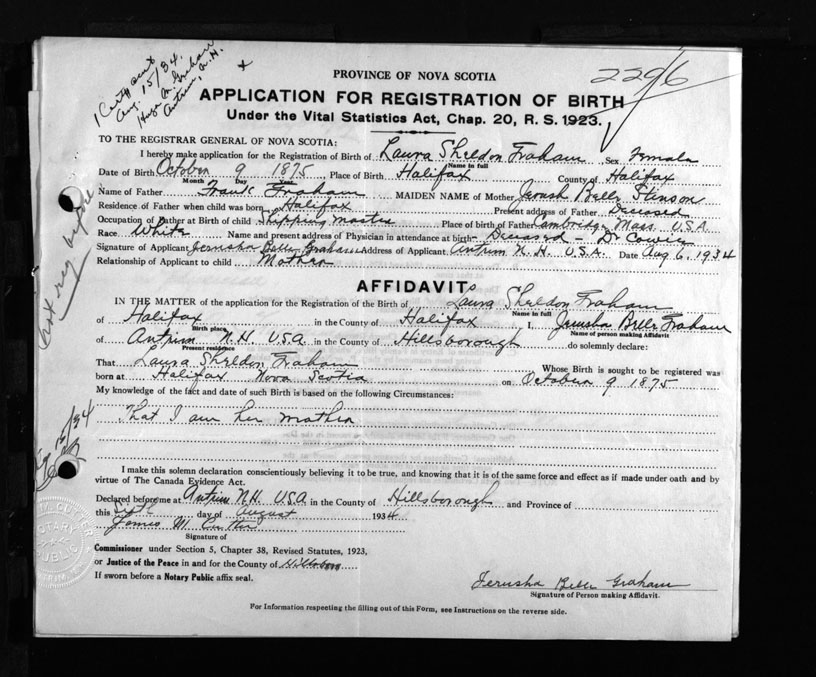 1 Cert sent
Aug. 15/34.
Hugh M. Graham
Antrim, N.H.
PROVINCE OF NOVA SCOTIA
2296
APPLICATION FOR REGISTRATION OF BIRTH
Under the Vital Statistics Act, Chap. 20, R. S. 1923.
TO THE REGISTRAR GENERAL OF NOVA SCOTIA:
I hereby make application for the Registration of Birth of Laura Sheldon Graham Sex Female
Name in full
Date of Birth October 9 1875 Place of Birth Halifax County of Halifax
Month Year
Name of Father Frank Graham MAIDEN NAME of Mother Jerush Belle Stinson
Residence of Father when child was born Halifax Present address of Father Deceased
Occupation of Father at Birth of child Shipping Master Place of birth of Father Cambridge Mass. U.S.A.
Race White Name and present address of Physician in attendance at birth Deceased - Dr Cowie
Signature of Applicant Jerusha Belle Graham Address of Applicant Antrim N.H. U.S.A. Date Aug 6, 1934
Relationship of Applicant to child Mother
AFFIDAVIT
IN THE MATTER of the application for the Registration of the Birth of Laura Sheldon Graham
Name in full
of Halifax in the County of Halifax I, Jerusha Belle Graham
Birth place Name of person making Affidavit
of Antrim N.H. U.S.A in the County of Hillsborough do solemnly declare:
Present residence
That Laura Sheldon Graham Whose Birth is sought to be registered was
born at Halifax Nova Scotia on October 9 1875
My knowledge of the fact and date of such Birth is based on the following Circumstances:
That I am her mother
I make this solemn declaration conscientiously believing it to be true, and knowing that it is of the same force and effect as if made under oath and by
virtue of The Canada Evidence Act.
Declared before me at Antrim N.H. U.S.A in the County of Hillsborough and Province of
this Sixth day of August 1934
James M. Cutler
Signature of
Commissioner under Section 5, Chapter 38, Revised Statutes, 1923,
or Justice of the Peace in and for the County of Hillsboro
If sworn before a Notary Public affix seal.
Jerusha Belle Graham
Signature of Person making Affidavit.
For Information respecting the filling out of this Form, see Instructions on the reverse side.